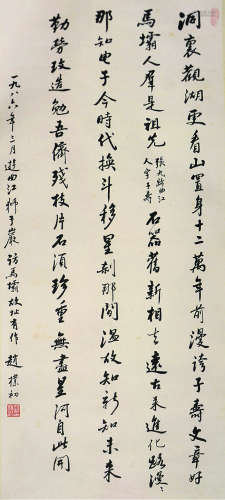 洞裏觀湖更看山置身十二萬年前漫誇子壽文章好
馬壩人羣是祖先張九齡曲江人字子壽石器舊新相去遠古來進化路漫漫
那知电子今時代換斗移星刹那間溫故知新知未来
勤勞改造勉吾儕殘技片石須珍重無盡星河自此開
一九八六年二月遊曲江獅子巖
訪馬壩故址有作趙樸初